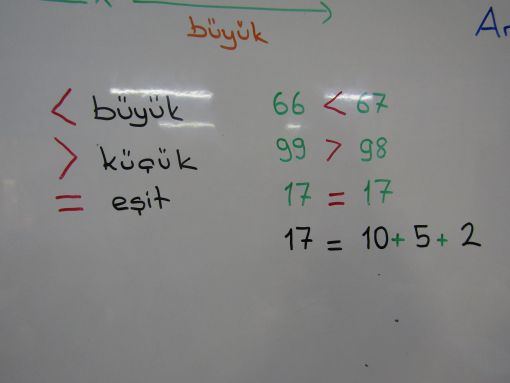 büyük
< büyük 66 < 67
> küçük 99 > 98
= eşit 17 = 17
17 = 10 + 5 + 2